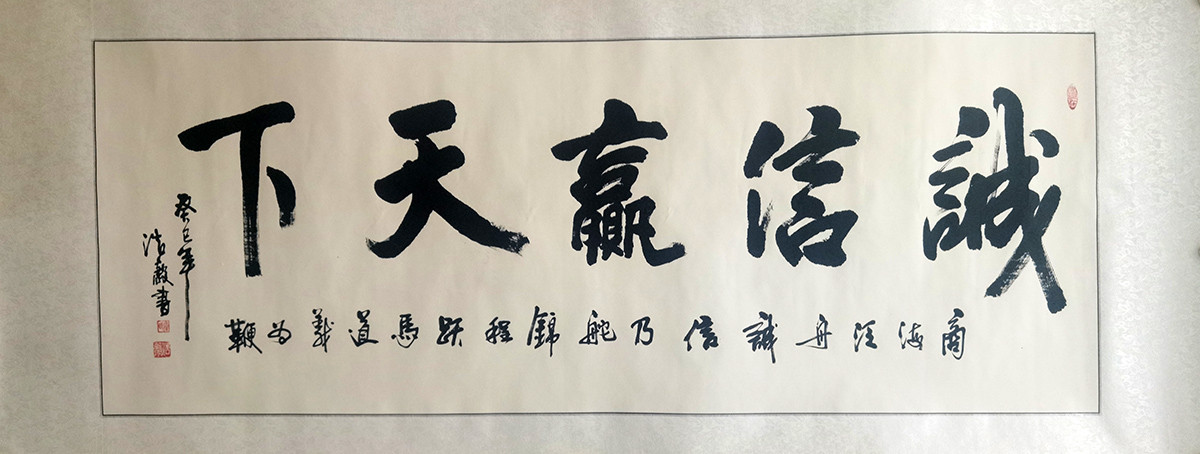 誠信贏天下
商海泛舟誠信乃舵錦程跃馬道義为鞭
癸巳年
浩毅書